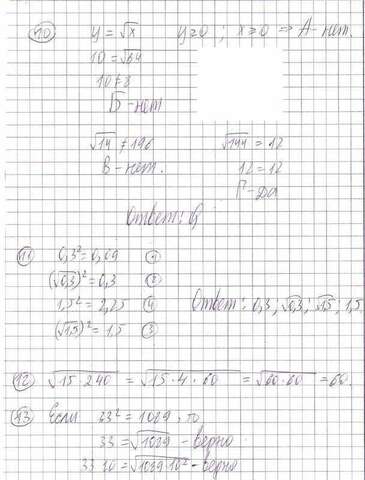 10 y = √x y ≥ 0 ; x ≥ 0 ⇒ А - нет.
10 = √64
10 ≠ 8
Б - нет
√14 ≠ 196 √144 = 12
В - нет. 12 = 12
Г - Да
Ответ:
11 0,3² = 0,09 1
(√0,3)² = 0,3 2
1,5² = 2,25 4 Ответ: 0,3 ; √0,3 ; √1,5 ; 1,5
(√1,5)² = 1,5 3
12 √15 · 240 = √15 · 4 · 60 = √60 · 60 = 60.
Если 33² = 1089, то
33 = √1089 - верно
= √1089 · 10² - верно